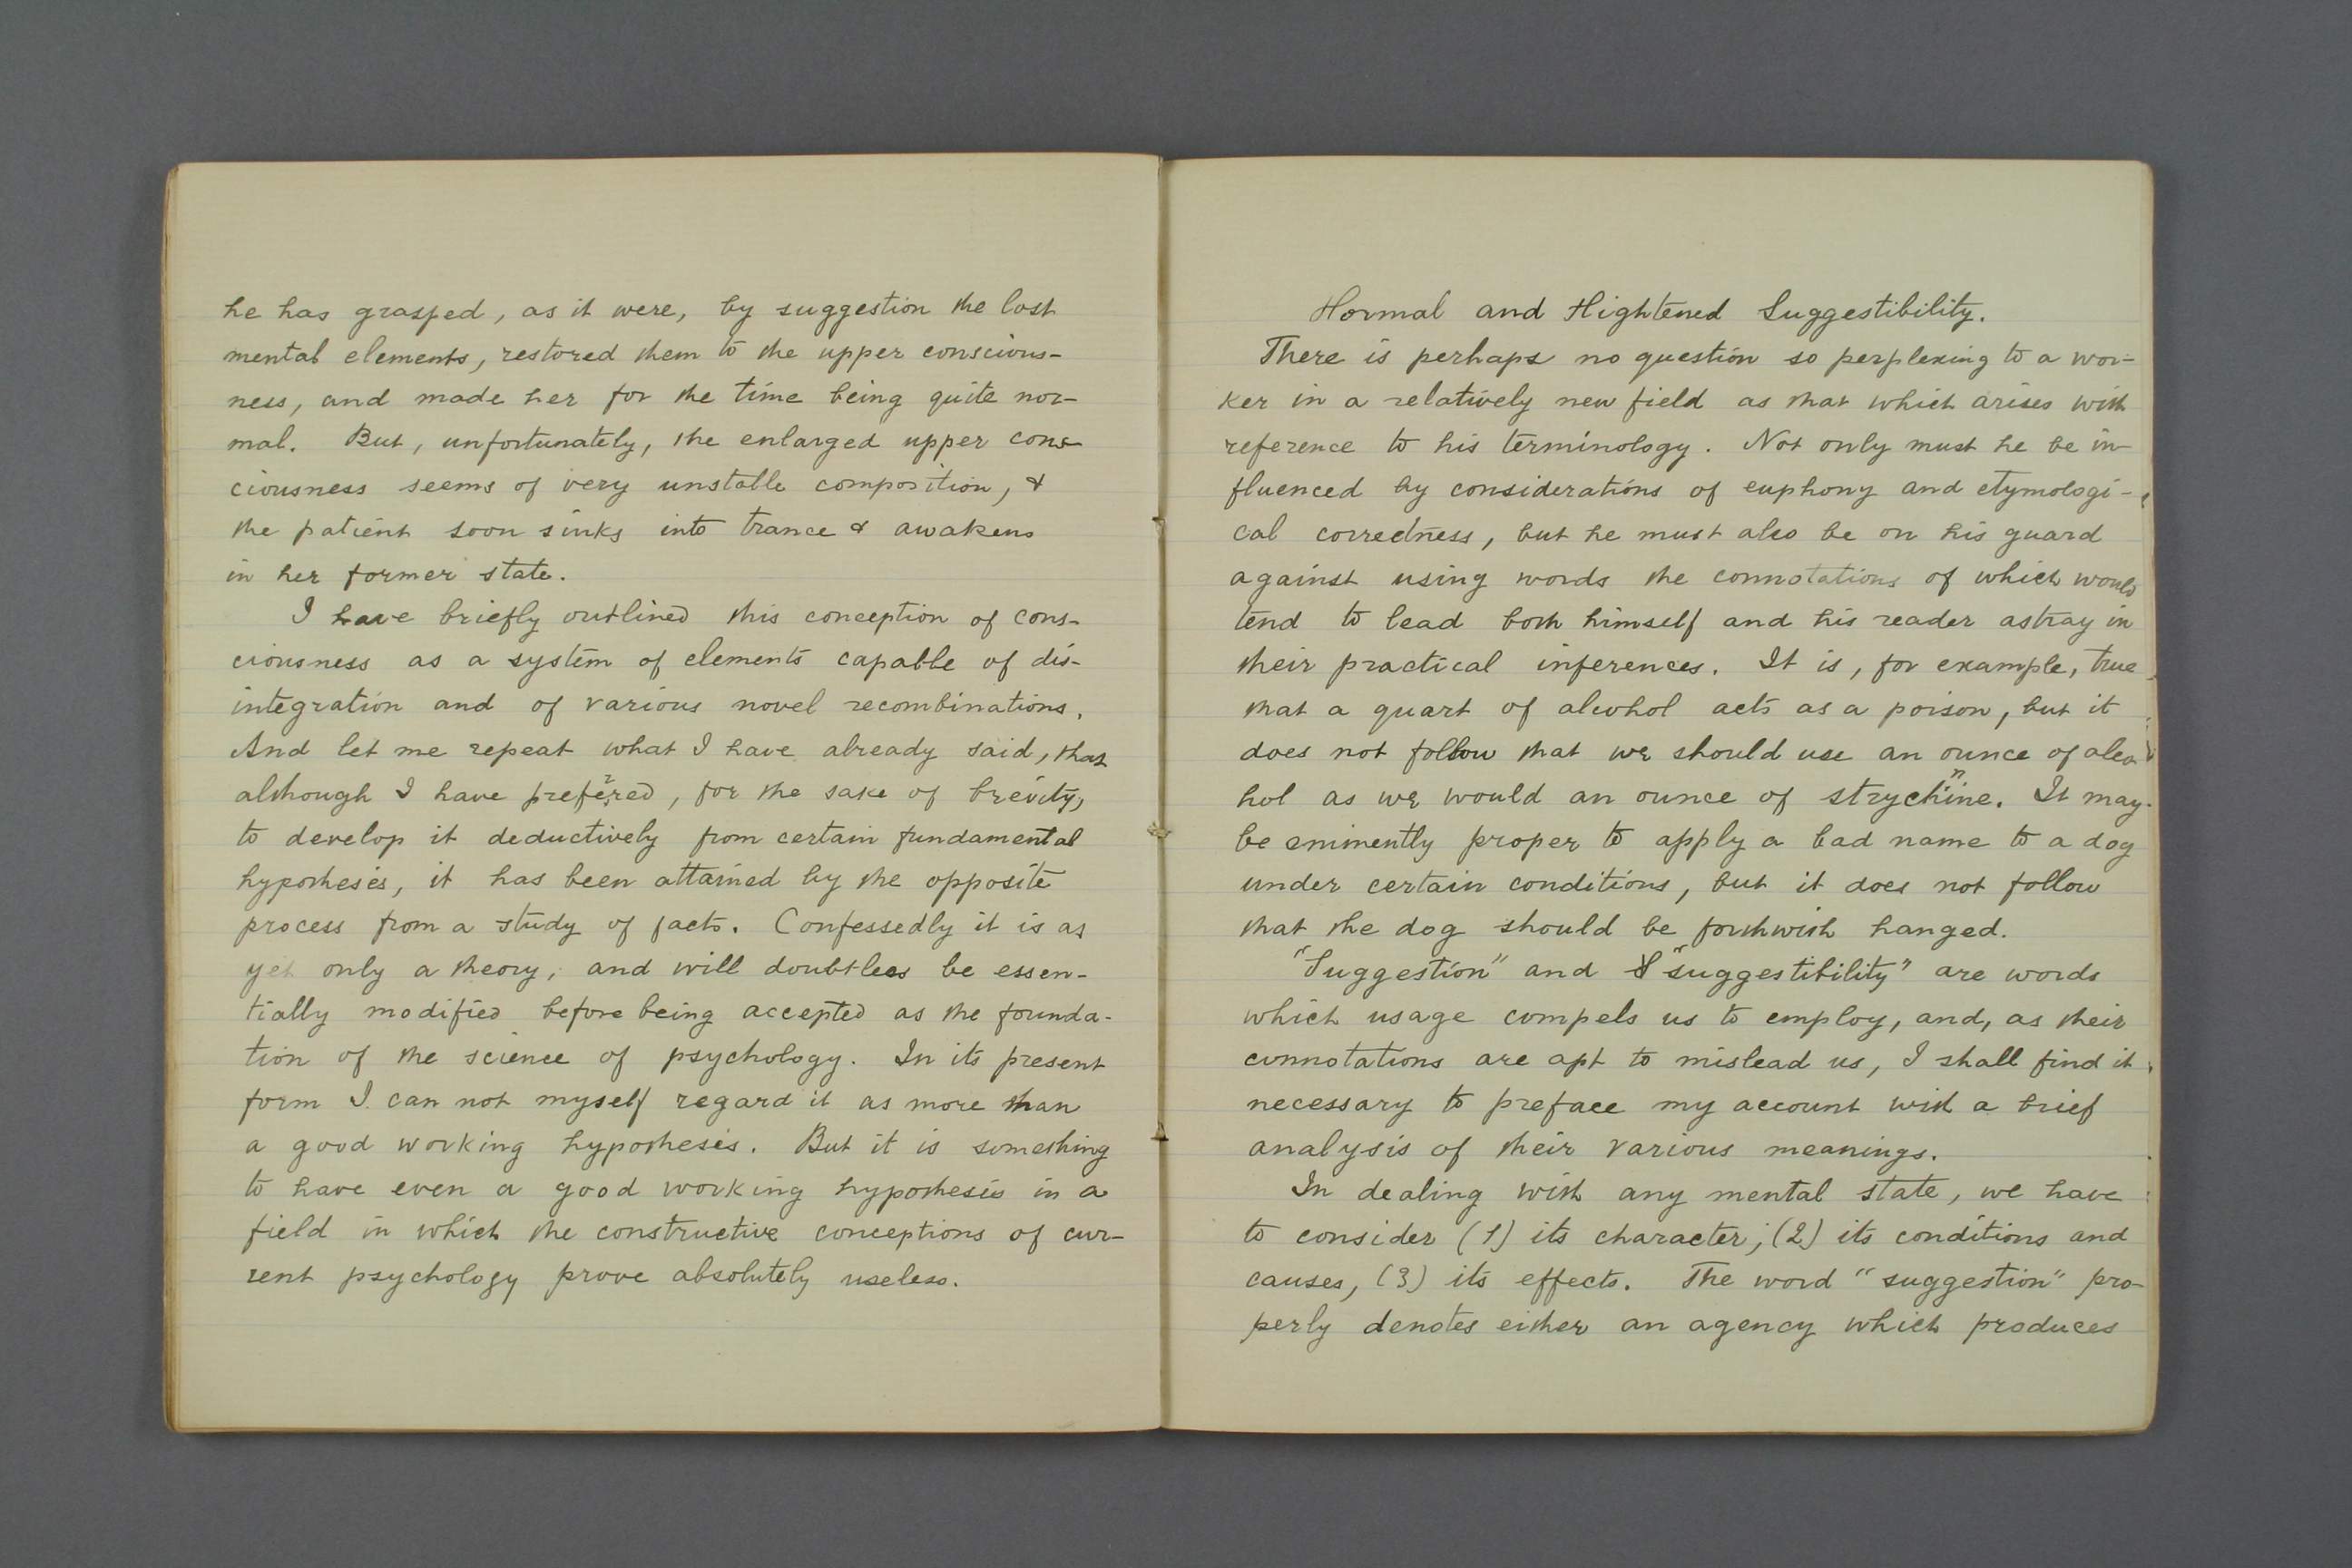 he has grasped, as it were, by suggestion the lost
mental elements, restored them to the upper conscious-
ness, and made her for the time being quite nor-
mal. But, unfortunately, the enlarged upper cons-
ciousness seems of very unstable composition, &
the patient soon sinks into trance & awakens
in her former state.
I have briefly outlined this conception of cons-
ciousness as a system of elements capable of dis-
integration and of various novel recombinations.
And let me repeat what I have already said, that
although I have preferred, for the sake of brevity,
to develop it deductively from certain fundamental
hypothesis, it has been attained by the opposite
process from a study of facts. Confessedly it is as
yet only a theory, and will doubtless be essen-
tially modified before being accepted as the founda-
tion of the science of psychology. In its present
form I can not myself regard it as more than
a good working hypothesis. But it is something
to have even a good working hypothesis in a
field in which the constructive conceptions of cur-
rent psychology prove absolutely useless.
Normal and Hightened Suggestibility.
There is perhaps no question so perplexing to a wor-
ker in a relatively new field as that which arises with
reference to his terminology. Not only must he be in-
fluenced by considerations of euphony and etymologi-
cal correctness, but he must also be on his guard
against using words the connotations of which would
tend to lead both himself and his reader astray in
their practical inferences. It is, for example, true
that a quart of alcohol acts as a poison, but it
does not follow that we should use an ounce of alco-
hol as we would an ounce of strychnine. It may
be eminently proper to apply a bad name to a dog
under certain conditions, but it does not follow
that the dog should be forthwith hanged.
"Suggestion" and "suggestibility" are words
which usage compels us to employ, and, as their
connotations are apt to mislead us, I shall find it
necessary to preface my account with a brief
analysis of their various meanings.
In dealing with any mental state, we have
to consider (1) its character; (2) its conditions and
causes, (3) its effects. The word "suggestion" pro-
perly denotes either an agency which produces